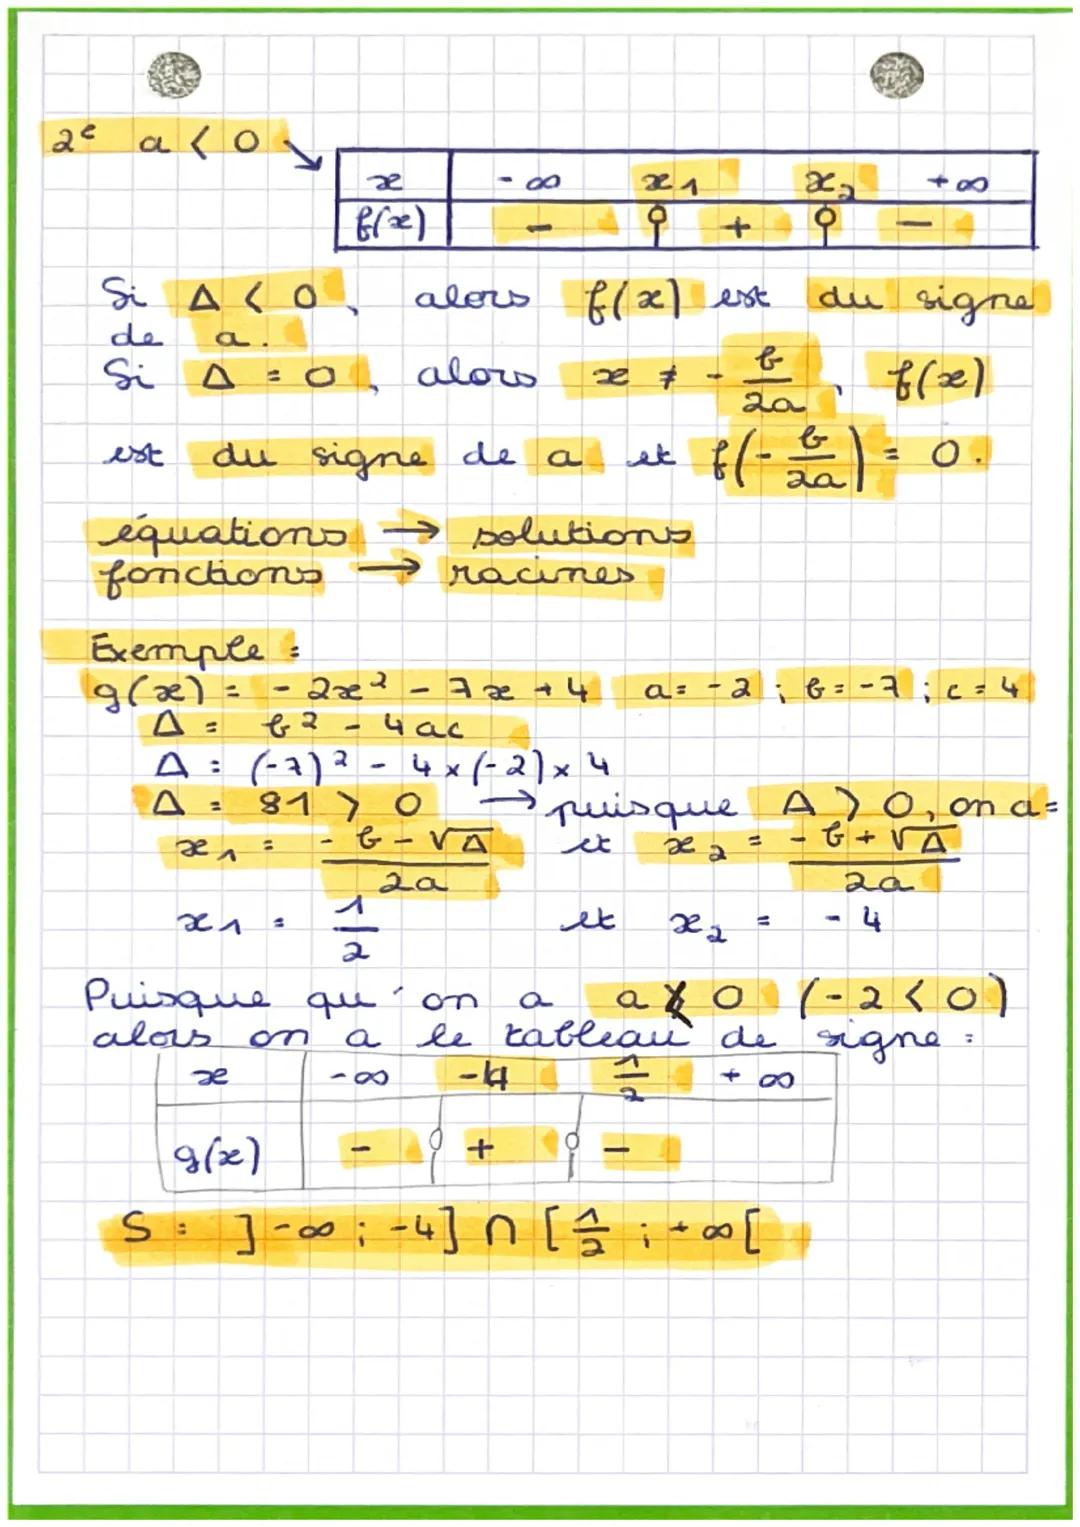 2e a < 0
x -∞ x1 x2 +∞
f(x) - 0 + 0 -
Si Δ < 0, alors f(x) est du signe
de a.
Si Δ = 0, alors x ≠ - b/2a, f(x)
est du signe de a et f(- b/2a) = 0.
équations → solutions
fonctions → racines
Exemple :
g(x) = - 2x² - 7x + 4 a = -2 ; b = -7 ; c = 4
Δ = b² - 4ac
Δ = (-7)² - 4 × (-2) × 4
Δ = 81 > 0 → puisque Δ > 0, on a =
x1 = - b - √Δ / 2a et x2 = - b + √Δ / 2a
x1 = 1/2 et x2 = - 4
Puisque qu'on a a < 0 (-2 < 0)
alors on a le tableau de signe :
x -∞ -4 1/2 +∞
g(x) - 0 + 0 -
S = ]-∞ ; -4] ∩ [1/2 ; +∞[